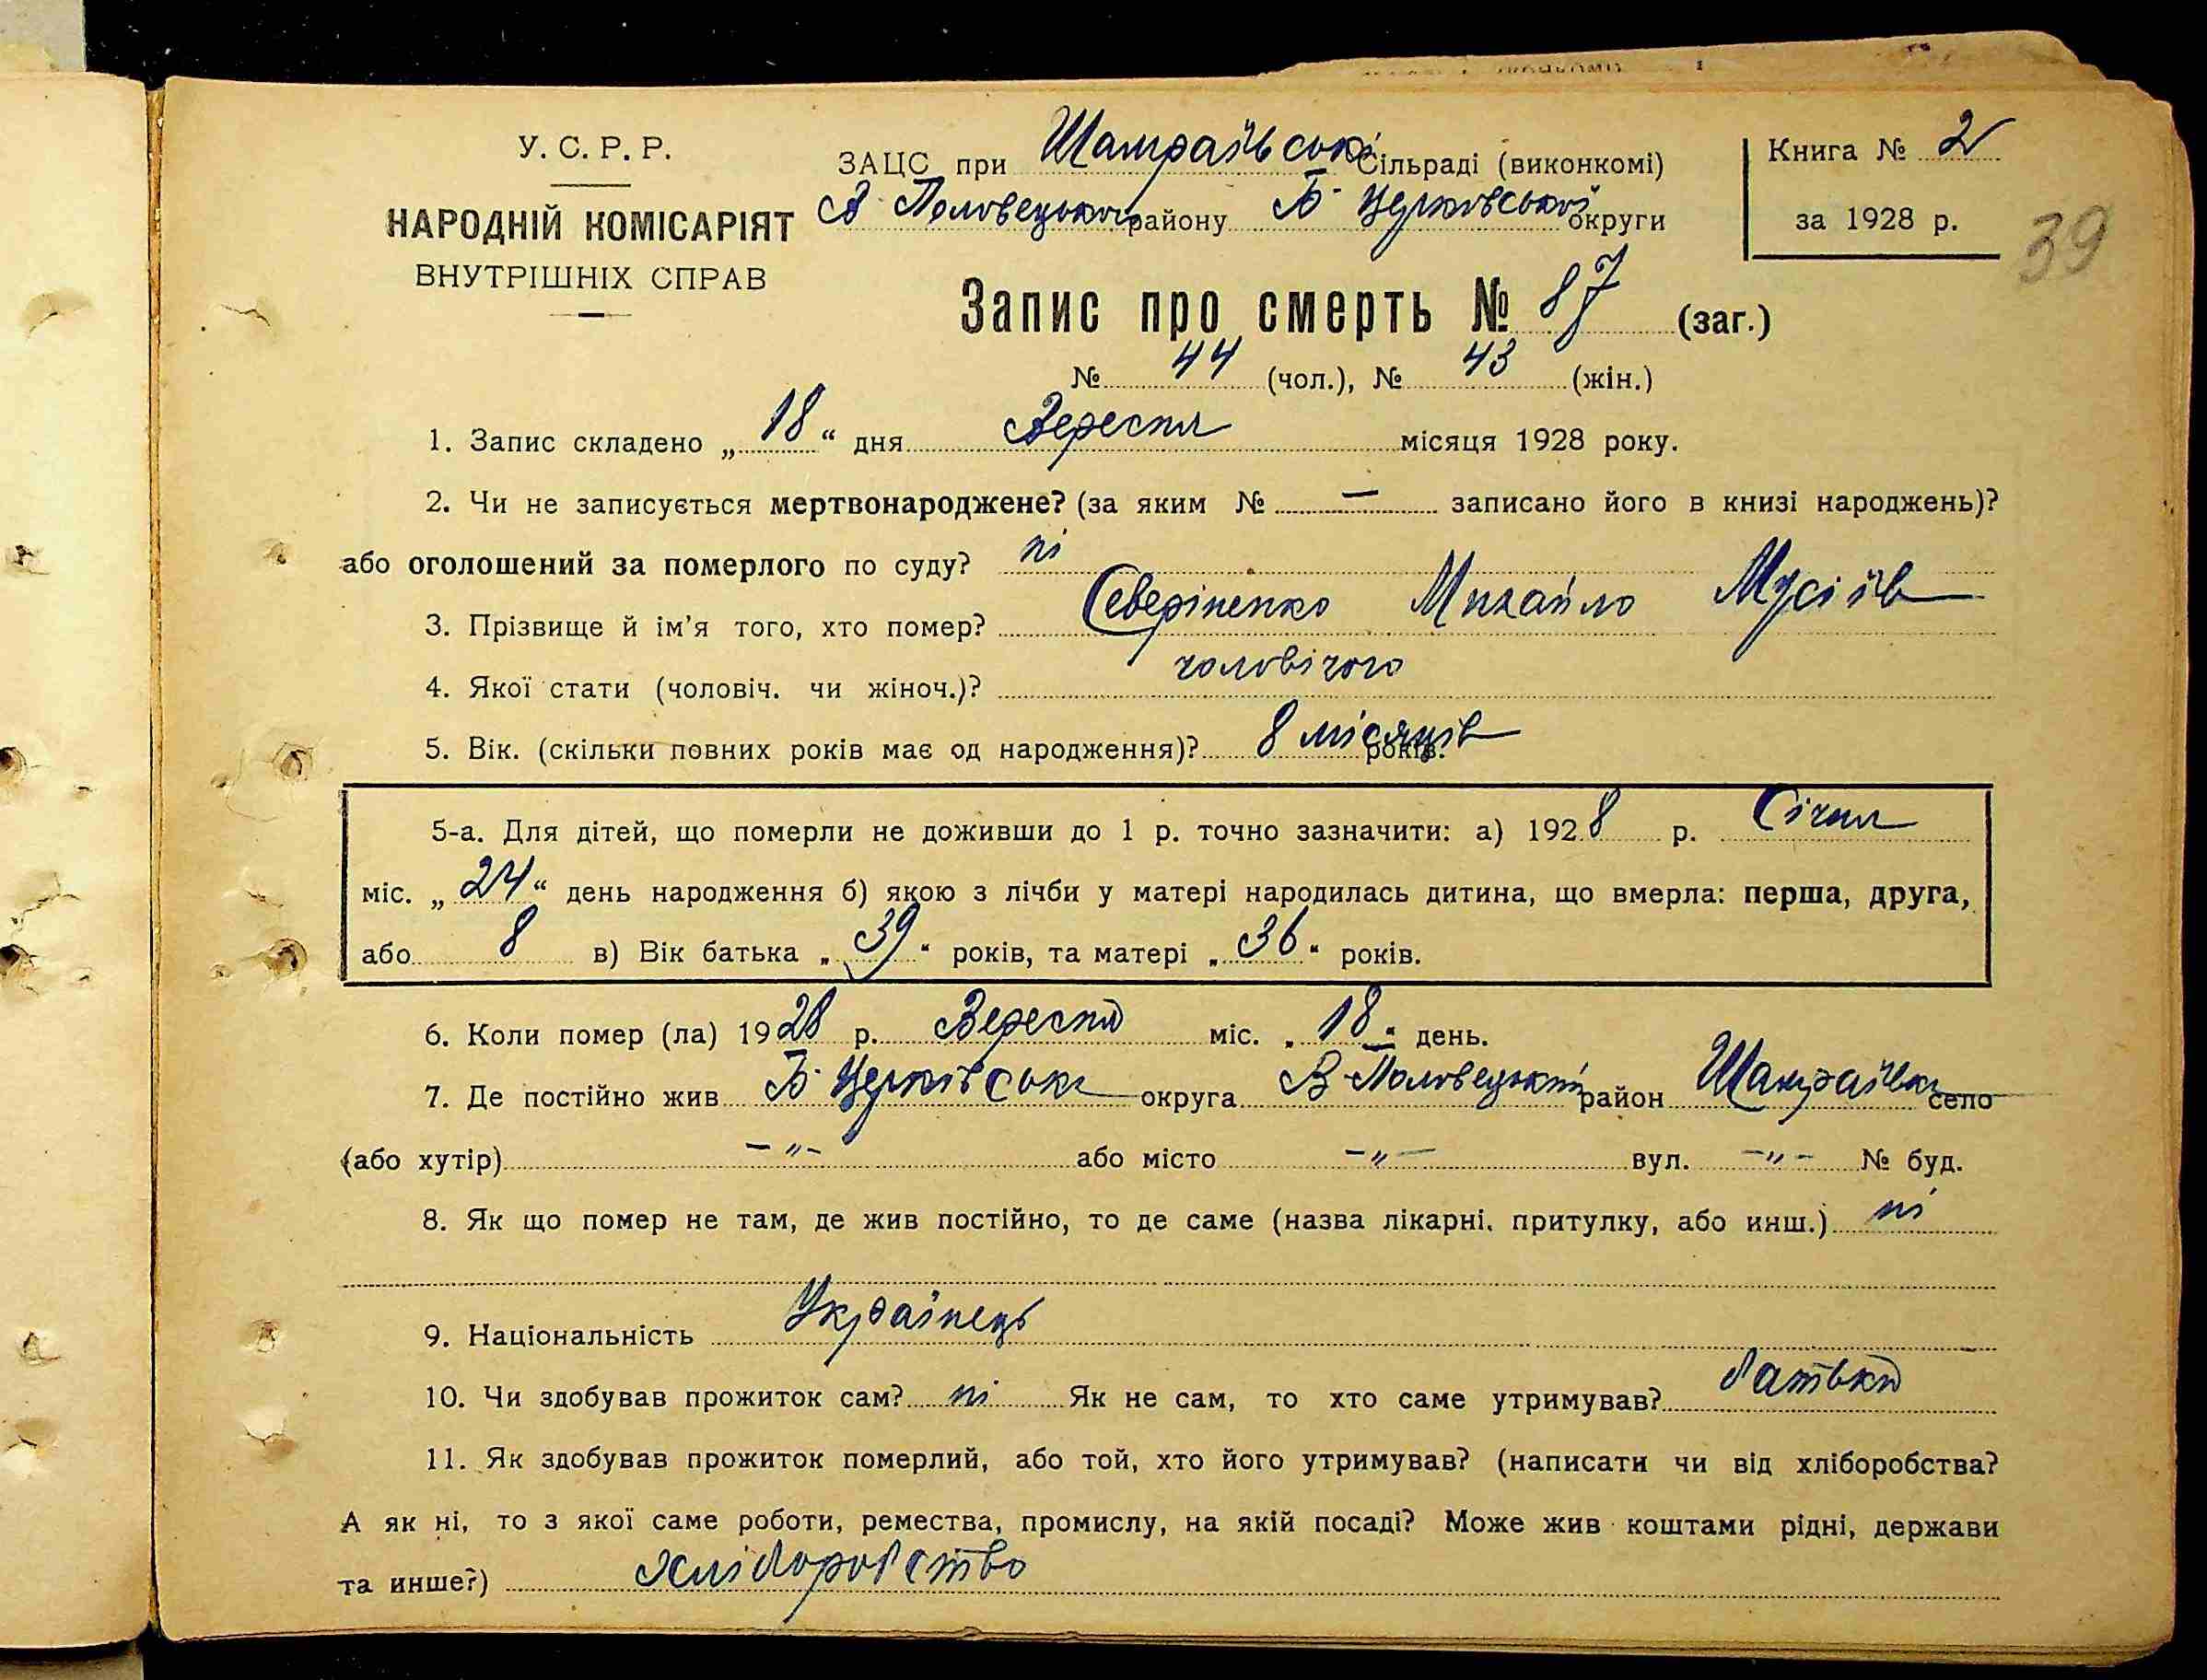 У. С. Р. Р.
НАРОДНІЙ КОМІСАРІЯТ
ВНУТРІШНІХ СПРАВ
ЗАЦС при Шамраївські Сільраді (виконкомі)
В Половецького району Б Церковської округи
Книга № 2
за 1928 р.
39
Запис про смерть № 87 (заг.)
№ 44 (чол.), № 43 (жін.)
1. Запис складено „ 18 “ дня Вересня місяця 1928 року.
2. Чи не записується мертвонароджене? (за яким № — записано його в книзі народжень)?
або оголошений за померлого по суду? ні
3. Прізвище й ім'я того, хто помер? Северіненко Михайло Мусіїв
4. Якої стати (чоловіч. чи жіноч.)? чоловічого
5. Вік. (скільки повних років має од народження)? 8 місяців років.
5-а. Для дітей, що померли не доживши до 1 р. точно зазначити: а) 1928 р. Січня
міс. „ 24 “ день народження б) якою з лічби у матері народилась дитина, що вмерла: перша, друга,
або 8 в) Вік батька „ 39 “ років, та матері „ 36 “ років.
6. Коли помер (ла) 1928 р. Вересня міс. „ 18 “ день.
7. Де постійно жив Б Церківська округа В-Половецький район Шамраївка село
(або хутір) -„- або місто -„- вул. -„- № буд.
8. Як що помер не там, де жив постійно, то де саме (назва лікарні, притулку, або инш.) ні
9. Національність Українець
10. Чи здобував прожиток сам? ні Як не сам, то хто саме утримував? батьки
11. Як здобував прожиток померлий, або той, хто його утримував? (написати чи від хліборобства?
А як ні, то з якої саме роботи, ремества, промислу, на якій посаді? Може жив коштами рідні, держави
та инше?) Хліборобство